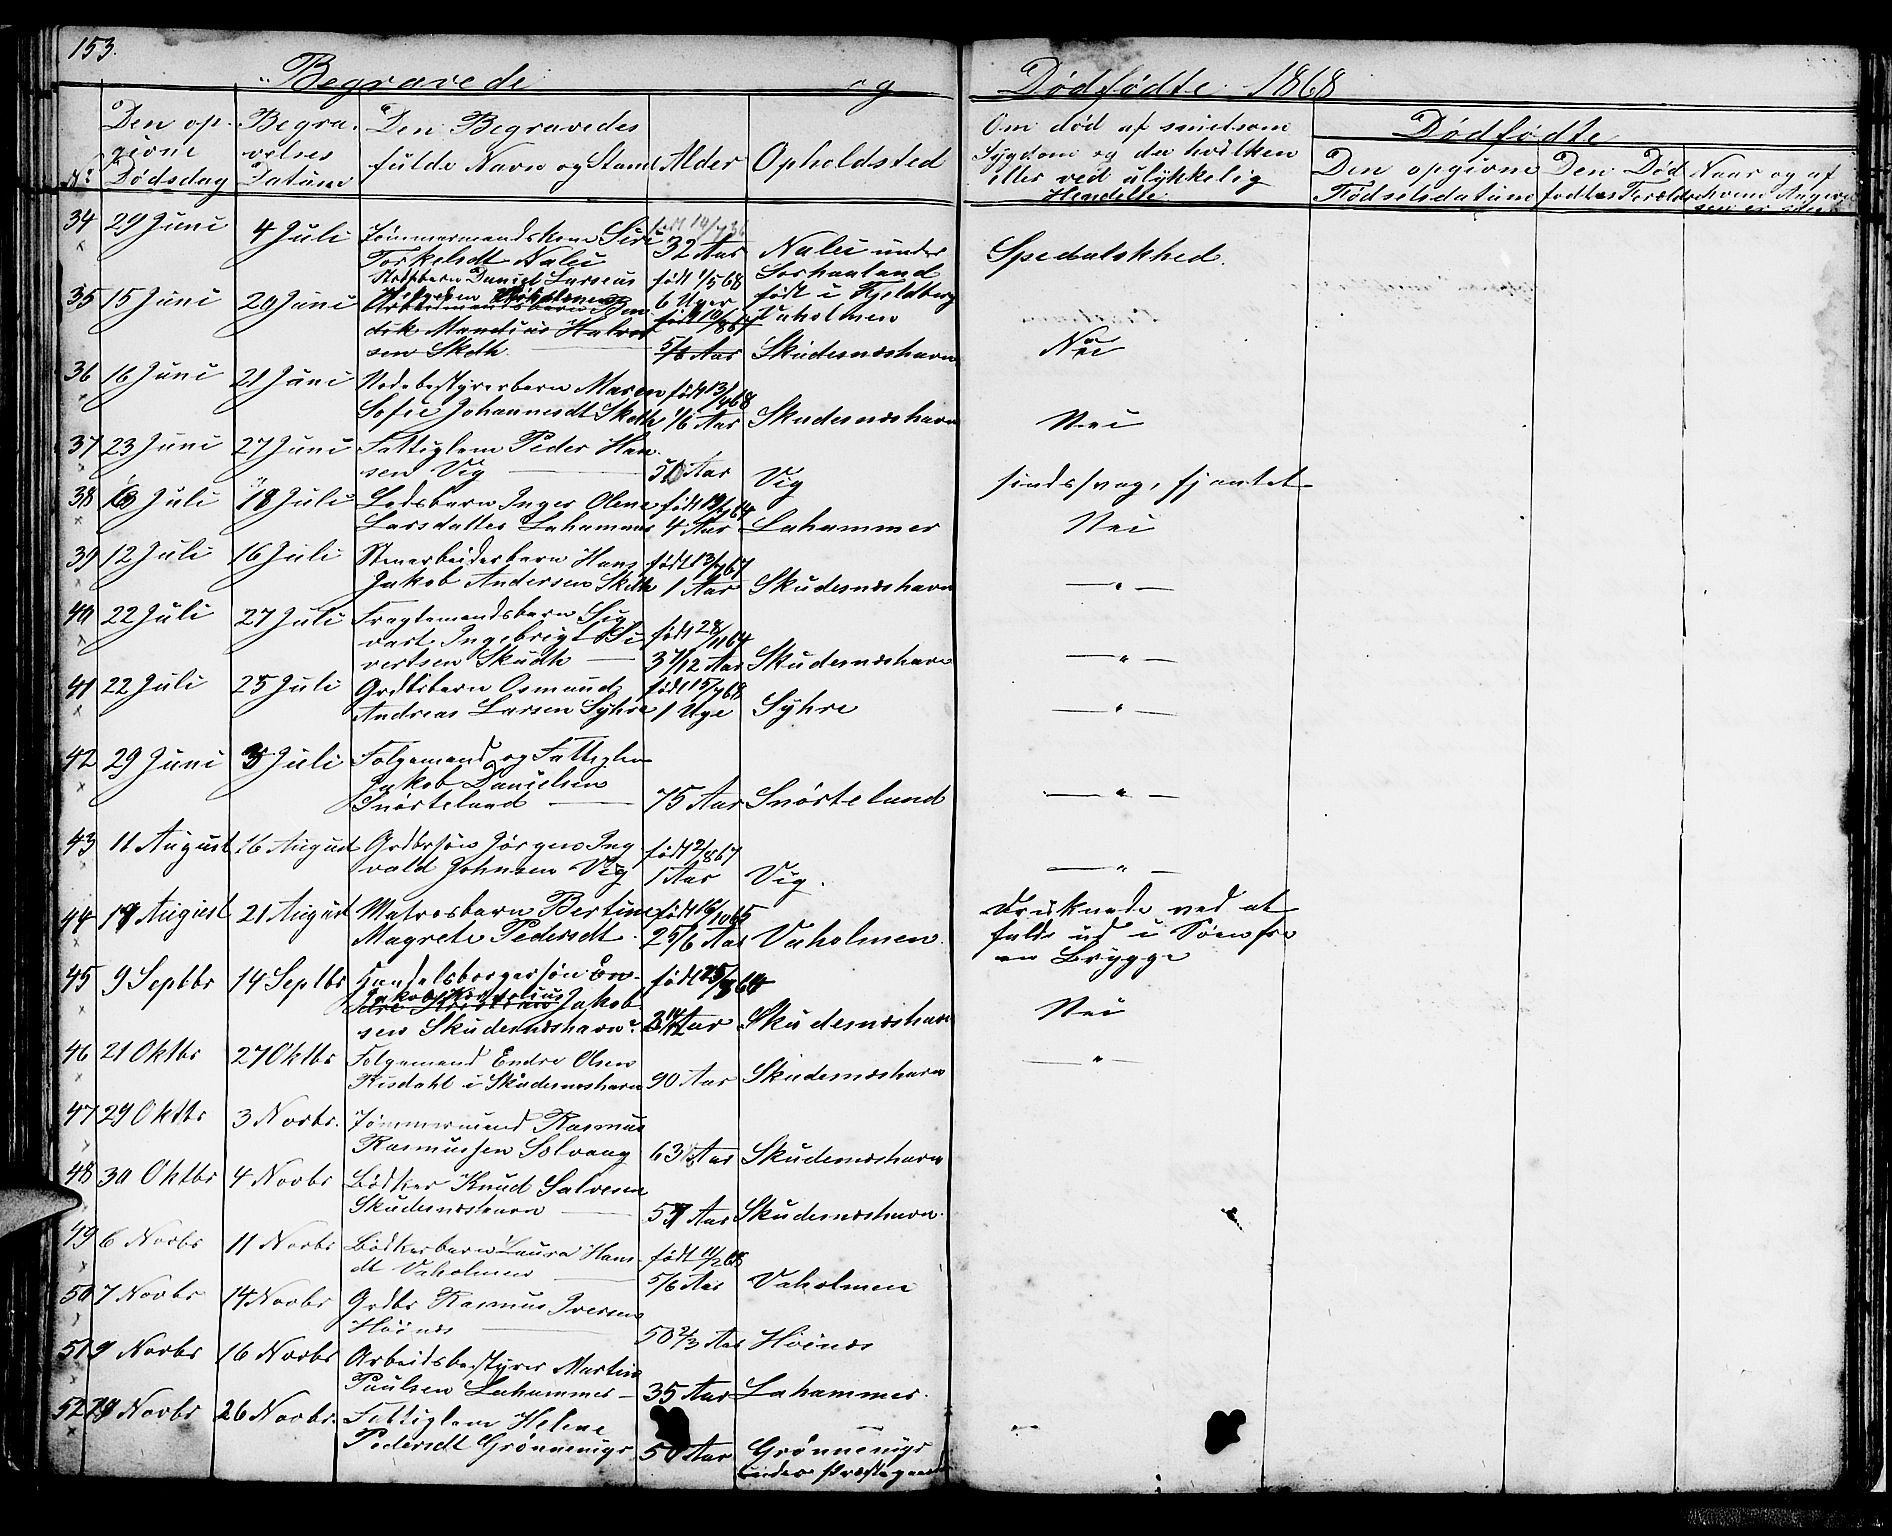 153.
Begravede og Dødfødte 1868
No
Den opgivne Dødsdag
Begravelses Datum
Den Begravedes fulde Navn og Stand
Alder
Opholdsted
Om død af smitsom Sygdom og da hvilken eller ved ulykkelig Hendelse
Dødfødte
Den opgivne Fødselsdatum
Den Dødfødtes Forældre
Naar og af hvem
34 29 Juni 4 Juli Tømmermandskone Siri
Torkelsdt Nalei
32 Aar Nalei under
Sørhaaland
Spedalskhed.
35 15 Juni 20 Juni
Daniel Larsen
født 1/5 68
6 Uger
født i Fjeldberg
Vaholmen
Arbeidmandsbarn Ben
dik Mandius Halvor
sen Skdh.
5/6 Aar Skudesnæshavn
Nei
36 16 Juni 21 Juni Maren
Sofie Johannesdt Skdh
født 13/4 68
1/6 Aar Skudesnæshavn
Nei
37 23 Juni 27 Juni Fattiglem Peder Han
sen Vig
50 Aar Vig
sindssvag, fjantet
38 Juli 18 Juli Lodsbarn Inger Olene
Larsdatter Lahammer
4 Aar Lahammer
Nei
39 12 Juli 16 Juli Stenarbeiderbarn Hans
Jakob Andersen Skdh
født 13/7 67
1 Aar Skudesnæshavn
— " —
40 22 Juli 27 Juli Fragtemandsbarn Sig
vart Ingebrigt Si
vertsen Skudh
født 28/11 64
3 7/12 Aar Skudesnæshavn
— " —
41 22 Juli 25 Juli Grdbrbarn Osmund
Andreas Larsen Syhre
født 15/7 68
1 Uge Syhre
— " —
42 29 Juni 3 Juli Folgemand og Fattiglem
Jakob Danielsen
Snørteland
75 Aar Snørteland
— " —
43 11 August 16 August Grdbrsøn Jørgen Ing
vald Johnsen Vig
født 2/8 67
1 Aar Vig.
— " —
44 19 August 21 August Matrosbarn Bertine
Magrete Pedersdt.
født 16/10 65
2 5/6 Aar Vaholmen.
Druknede ved at
falde ud i Søen fra
en Brygge
45 9 Septbr 14 Septbr Handelsborgersøn En-
Jakob Kornelius
dre Jakob
sen Skudesnæshavn
Aar Skudesnæshavn
Nei
46 21 Oktbr 27 Oktbr Folgemand Endre Olsen
Risdahl i Skudesnæshavn
90 Aar Skudesnæshavn
— " —
47 29 Oktbr 3 Novbr. Tømmermand Rasmus
Rasmussen Solvang
63 Aar Skudesnæshavn
48 30 Oktbr 4 Novbr Bødker Knud Salvesen
Skudesnæshavn
Aar Skudesnæshavn.
49 6 Novbr 11 Novbr Bødkerbarn Laura Hans
dt Vaholmen
født 11/2 68
5/6 Aar Vaholmen
50 7 Novbr 14 Novbr Grdbr Rasmus Iversen
Høines
50 2/3 Aar Høines
51 9 Novbr 16 Novbr Arbeidsbestyrer Martin
Paulsen Lahammer
35 Aar Lahammer.
52 Novbr 26 Novbr. Fattiglem Helene
Pedersdt Grønnenigr
50 Aar Grønnenigr
under Præstegaard